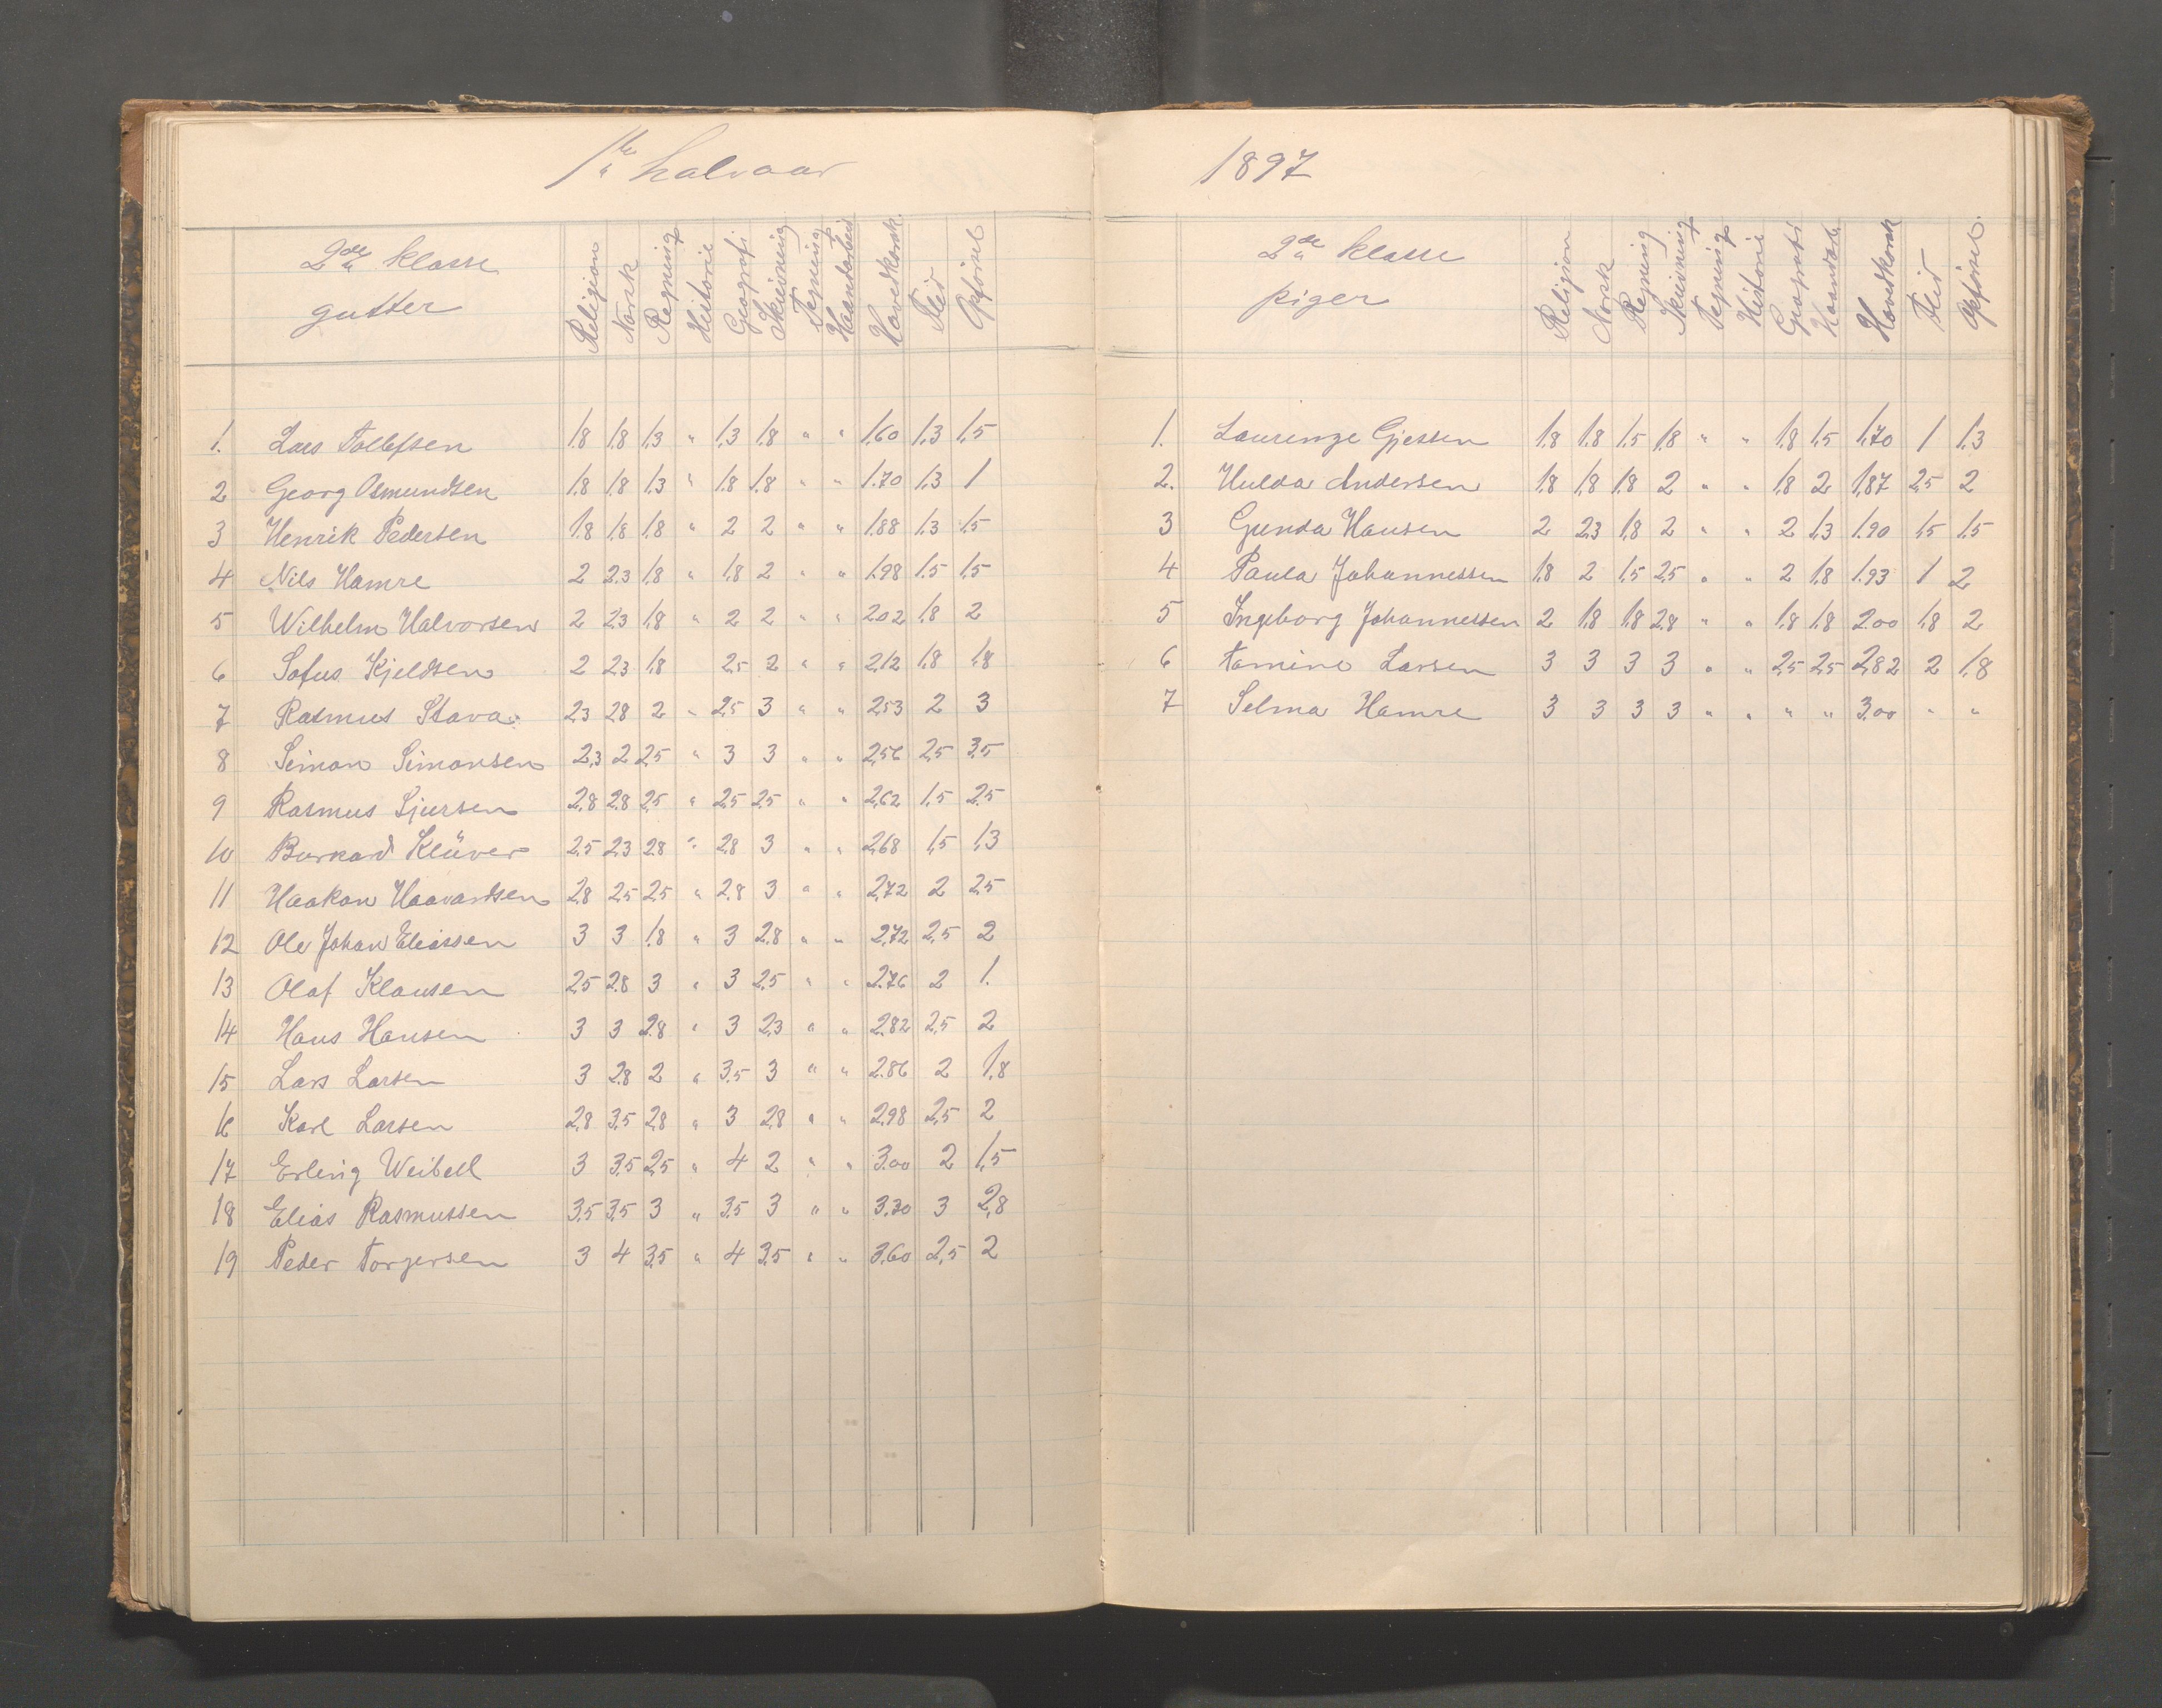 1ste halvaar
2den klasse
gutter
Religion Norsk Regning Historie Geografi Skrivning Tegning Haandarbeid Hovedkarak. Flid Opførsel
1. Lars Tollefsen 1,8 1,8 1,3 " 1,3 1,8 " " 1,60 1,3 1,5
2 Georg Osmundsen 1,8 1,8 1,3 " 1,8 1,8 " " 1.70 1,3 1
3 Henrik Pedersen 1,8 1,8 1,8 " 2 2 " " 1,88 1,3 1,5
4 Nils Hamre 2 2,3 1,8 " 1,8 2 " " 1,98 1,5 1,5
5 Wilhelm Halvorsen 2 2,3 1,8 " 2 2 " " 2,02 1,8 2
6 Sofus Kjeldsen 2 2,3 1,8 2,5 2 " " 2,12 1,8 1,8
7 Rasmus Stava 2,3 2,8 2 " 2,5 3 " " 2,53 2 3
8 Simon Simonsen 2,3 2 2,5 " 3 3 " " 2,56 2,5 3,5
9 Rasmus Sjursen 2,8 2,8 2,5 " 2,5 2,5 " " 2,62 1,5 2,5
10 Burkard Klüver 2,5 2,3 2,8 " 2,8 3 " " 2,68 1,5 1,3
11 Haakon Haavardsen 2,8 2,5 2,5 " 2,8 3 " " 2,72 2 2,5
12 Ole Johan Eliassen 3 3 1,8 " 3 2,8 " " 2,72 2,5 2
13 Olaf Klausen 2,5 2,8 3 " 3 2,5 " " 2.76 2 1.
14 Hans Hansen 3 3 2,8 " 3 2,3 " " 2,82 2,5 2
15 Lars Larsen 3 2,8 2 " 3,5 3 " " 2.86 2 1,8
16 Karl Larsen 2,8 3,5 2,8 " 3 2,8 " " 2,98 2,5 2
17 Erling Weibell 3 3,5 2,5 " 4 2 " " 3.00 2 1,5
18 Elias Rasmussen 3,5 3,5 3 " 3,5 3 " " 3.30 3 2,8
19 Peder Torgersen 3 4 3,5 " 4 3,5 " " 3,60 2,5 2
1897
2den klasse
piger
Religion Norsk Regning Skrivning Tegning Historie Geografi Haandarb. Hovedkarak Flid Opførsel.
1. Laurenze Gjessen 1,8 1,8 1,5 1,8 " " 1,8 1,5 1,70 1 1,3
2. Hulda Andersen 1,8 1,8 1,8 2 " " 1,8 2 1,87 2,5 2
3 Gunda Hansen 2 2,3 1,8 2 " " 2 1,3 1.90 1,5 1,5
4 Paula Johannessen 1,8 2 1,5 2,5 " " 2 1,8 1.93 1 2
5 Ingeborg Johannessen 2 1,8 1,8 2,8 " " 1,8 1,8 2.00 1,8 2
6 Tomine Larsen 3 3 3 3 " " 2,5 2,5 2,82 2 1,8
7 Selma Hamre 3 3 3 3 " " " " 3.00 " "